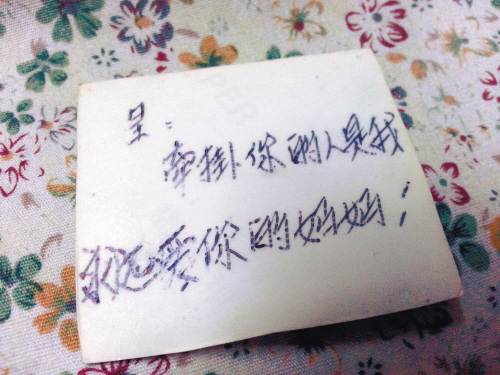 呈：
牵掛你的人是我
永远爱你的妈妈！